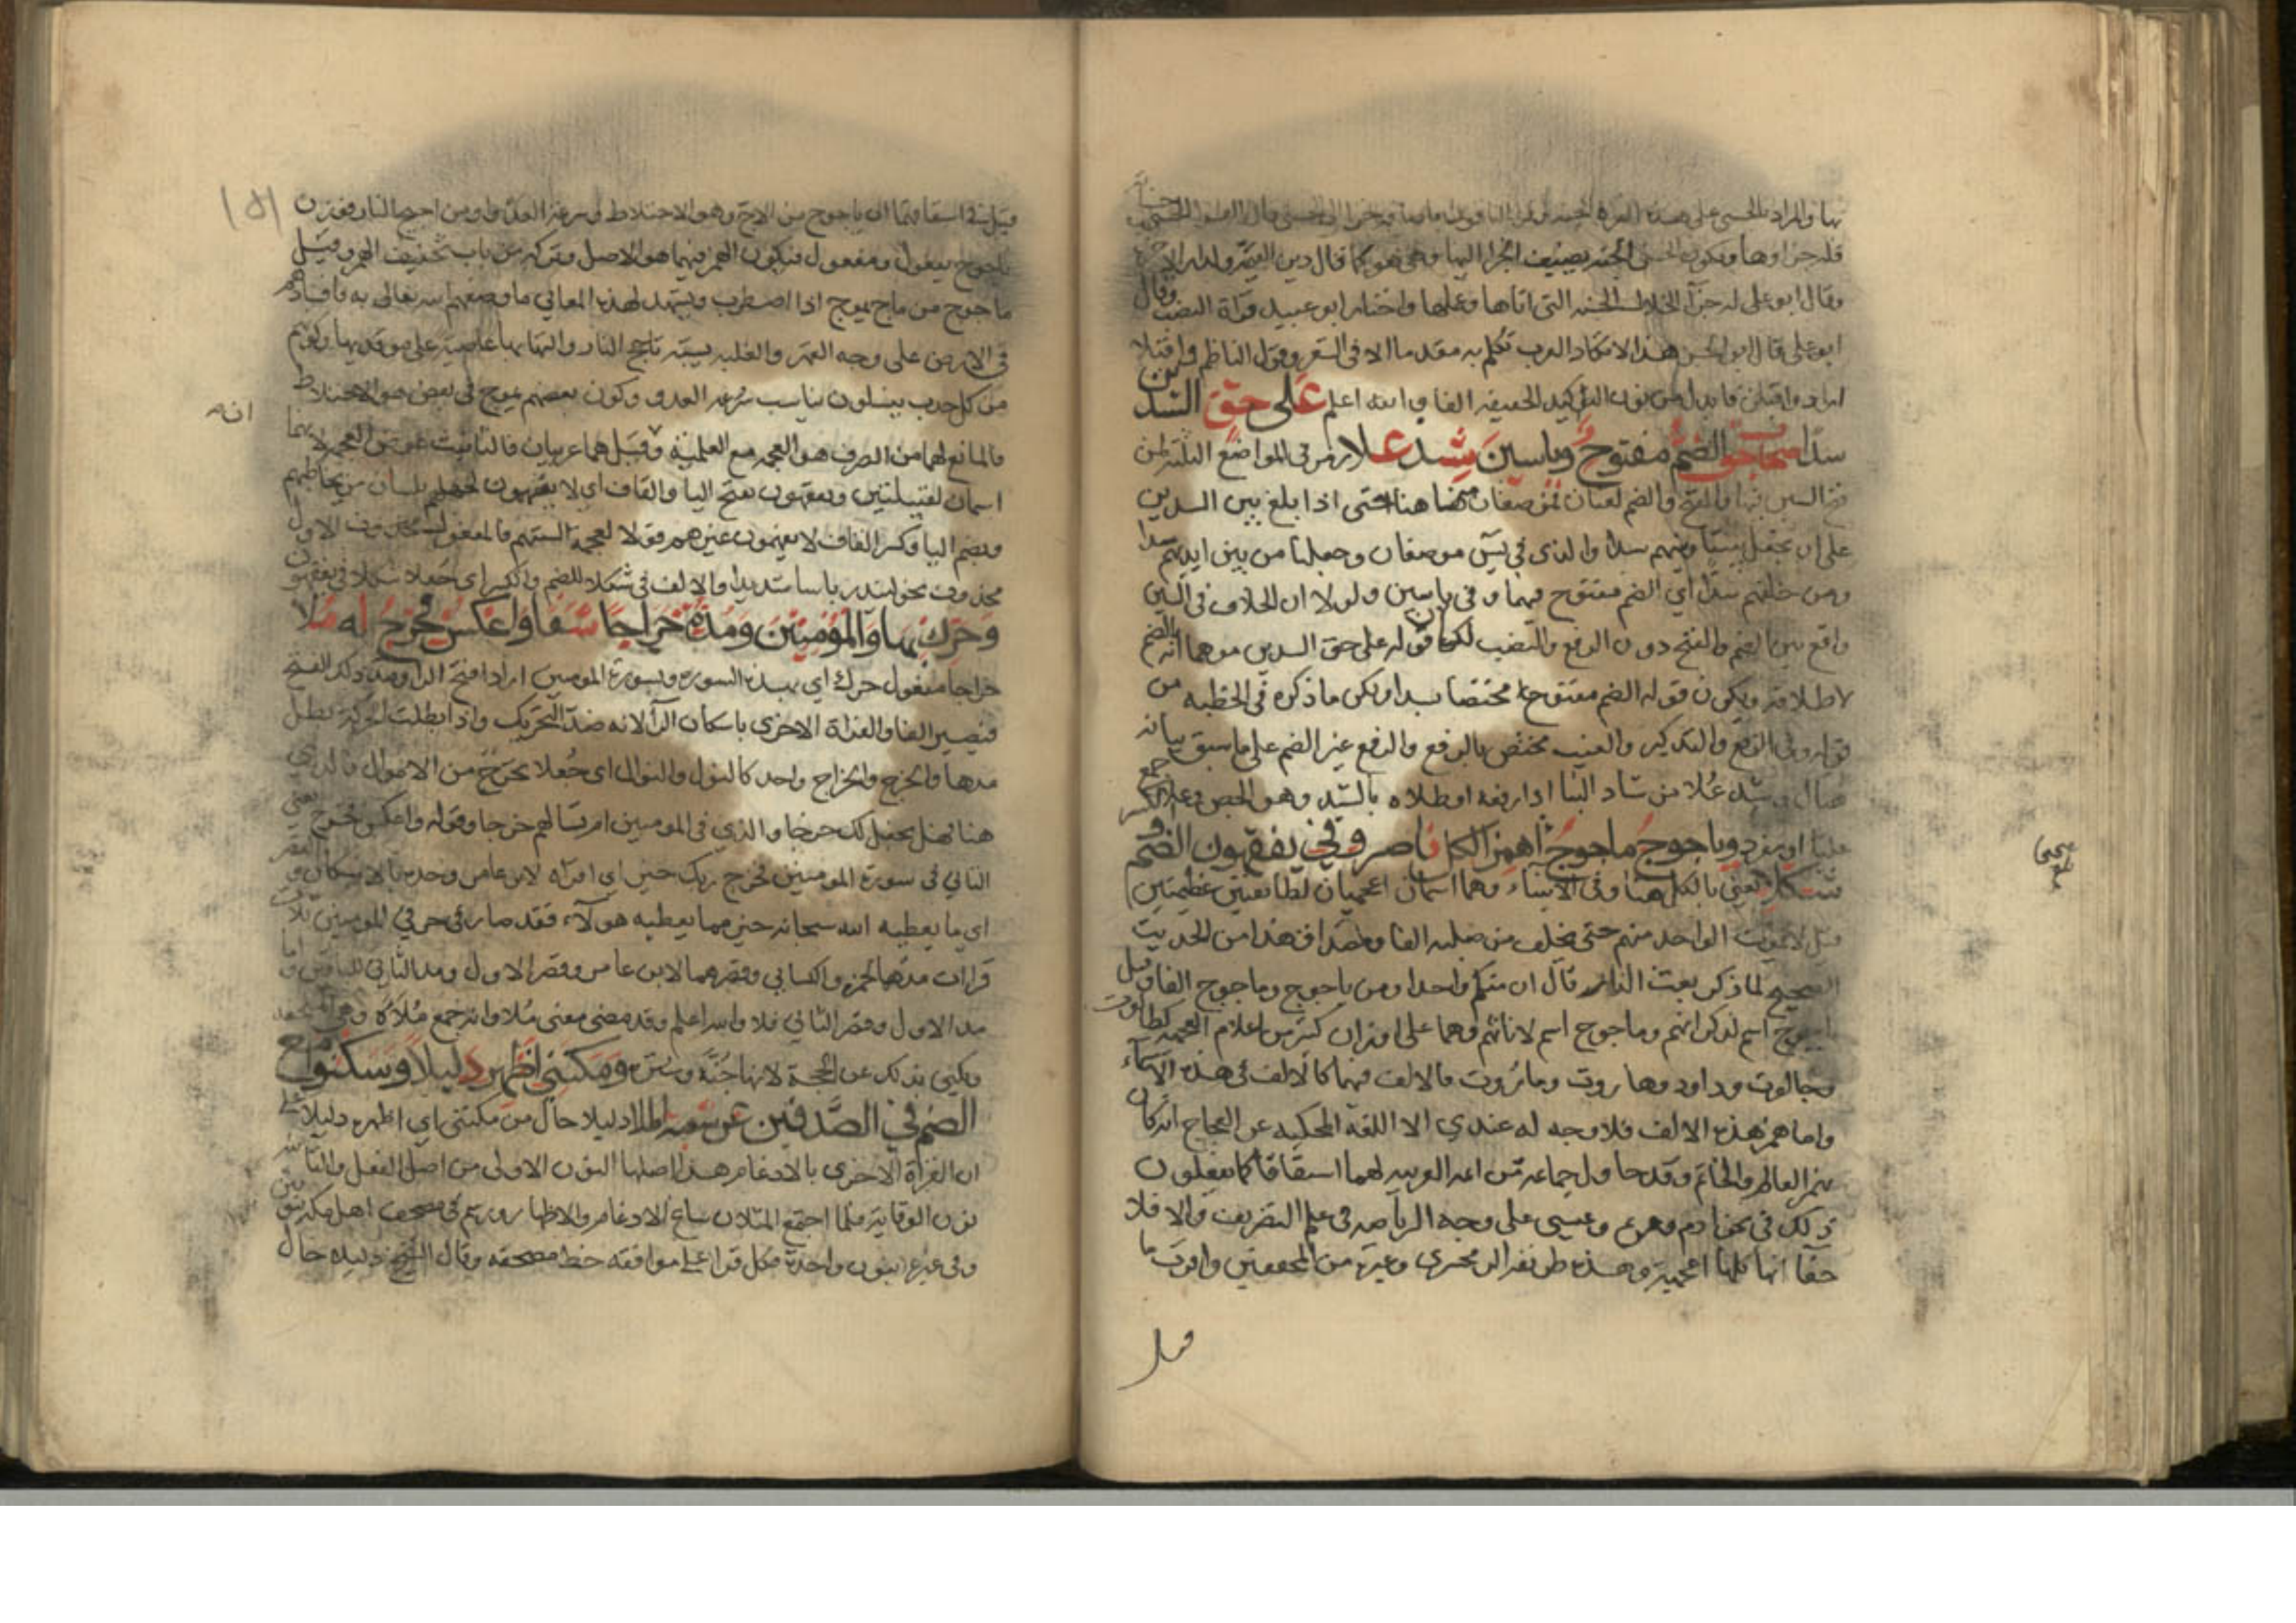 بها والمراد بالحسنى على هذه القراءة الجنة
فله جزاوها وتكون الحسنى الجنة بضيف الجزا اليها وهي هو كما قال دين القيمة ولدار الاخرة
وقال ابو على له جزآ الخلال الحسنه التي اتاها وعملها واختار ابو عبيد قراة النصب وقال
ابو على قال ابو الحسن هذا لا تكاد العرب تكلم به مقدما الا في الشعر وقول الناظم واقبلا
اراد واقبلن فابدل من نون التوكيد الخفيفه الفا والله اعلم على حق السدين
سدا صحاب حق الضم مفتوح وياسين شد علا رمز في المواضع الثلثة لمن
فتح السين فيها والفتح والضم لغتان فموضعان منها هنا حتى اذا بلغ بين السدين
على ان تجعل بيننا وبينهم سدا والذي في يس موضعان وجعلنا من بين ايديهم سدا
ومن خلفهم سدا اي الضم مفتوح فيهما وفي ياسين ولولا ان الخلاف في السين
واقع بين الضم والفتح دون الرفع والنصب لكان قوله على حق السدين موهما انه بالضم
لاطلاقه ويكون قوله الضم مفتوح مختصا بسدا ولكن ما ذكره في الخطبه من
قوله وفي الرفع والتذكير والغيب مختص بالرفع والرفع غير الضم على ما سبق بيانه
يقال وشد علا من شاد البنا اذا رفعه او طلاه بالشيد وهو الجص
وياجوج ماجوج اهمز الكل ناصرا وفي يفقهون الضم و
شكلا يعني بالكل هنا وفي الانبياء وهما اسمان اعجميان لطايفتين عظيمتين
قيل لا يموت الواحد منهم حتى يخلف من صلبه الفا وهذا من الحديث
الصحيح لما ذكر بعث النار قال ان منكم واحدا ومن ياجوج وماجوج الفا وقيل
ياجوج اسم لذكرانهم وماجوج اسم لاناثهم وهما على اوزان كثير من اعلام العجمه كطالوت
وجالوت وداود وهاروت وماروت فالالف فيهما كالالف في هذه الاسماء
واما همز هذه الالف فلا وجه له عندي الا اللغة المحكيه عن العجاج انه كان
يهمز العالم والخاتم وقد حاول جماعه من ائمة العربيه لهما اشتقاقا كما يفعلون
ذلك في نحو ادم ومريم وعيسى على وجه الرياضه في علم التصريف والا فلا
حقا انها كلها اعجمية وهذه طريقة الزمخشري وغيره من المحققين واقرب ما
قيل
قيل في اشتقاقهما ان ياجوج من الاج وهو الاختلاط وسرعة العدو او من اجيج النار فوزن
ياجوج يفعول ومفعول فيكون الهمز فيهما هو الاصل وتركه من باب تخفيف الهمز وقيل
ماجوج من ماج يموج اذا اضطرب ويشهد لهذه المعاني ما وصفهم الله تعالى به فافسادهم
في الارض على وجه القهر والغلبه يشبه تاجج النار والتهابها عاصية على موقديها وكونهم
من كل حدب ينسلون يناسب سرعة العدو وكون بعضهم يموج في بعض هو الاختلاط
انه
فالمانع لهما من الصرف هو العجمه مع العلمية وقيل هما عربيان فالتانيث عوض العجمه لانهما
اسمان لقبيلتين ويفقهون بفتح اليا والقاف اي لا يفقهون لجهلهم بلسان من يخاطبهم
وبضم اليا وكسر القاف لا يفهمون غيرهم قولا لعجمة السنتهم فالمفعول الاول
محذوف نحو لينذر باسا شديدا والالف في شكلا للضم والكسر اي جعلا شكلا في يفقهون
وحرك بها والمؤمنين ومده خراجا شفا واعكس فخرج له ملا
خراجا مفعول حرك اي بهذه السورة وبسورة المومنين اراد افتح الرا ومد ذلك الفتح
فيصير الفا والقراة الاخرى باسكان الرآ لانه ضد التحريك واذا بطلت الحركة بطل
مدها والخرج والخراج واحد كالنول والنوال اي جُعلا يخرج من الاموال فالذي
هنا فهل نجعل لك خرجا والذي في المومنين ام تسالهم خرجا وقوله واعكس فخرج يعني
الثاني في سورة المومنين فخرج ربك خير اي اقراه لابن عامر وحده بالاسكان والقصر
اي ما يعطيه الله سبحانه خير مما يعطيه هولآء فقد صار في حرفي المومنين ثلاث
قرات مدهما لحمزه والكسايي وقصرهما لابن عامر وقصر الاول ومد الثاني للباقين واما
مد الاول وقصر الثاني فلا والله اعلم وقد مضى معنى مُلا وانه جمع مُلآة وهي الملحفه
ويكنى بذلك عن الحجة لانها جُنّة وسترة ومكنني اظهر دليلا وسكنوا مع
الضم في الصدفين عن شعبة الملا دليلا حال من مكنني اي اظهره دليلا على
ان القرأة الاخرى بالادغام هذا اصلها النون الاولى من اصل الفعل والثانية
نون الوقاية فلما اجتمع المثلان ساغ الادغام والاظهار ورسم في مصحف اهل مكة بنونين
وفي غيره بنون واحدة فكل قرا على موافقة خط مصحفه وقال الشيخ دليلا حال